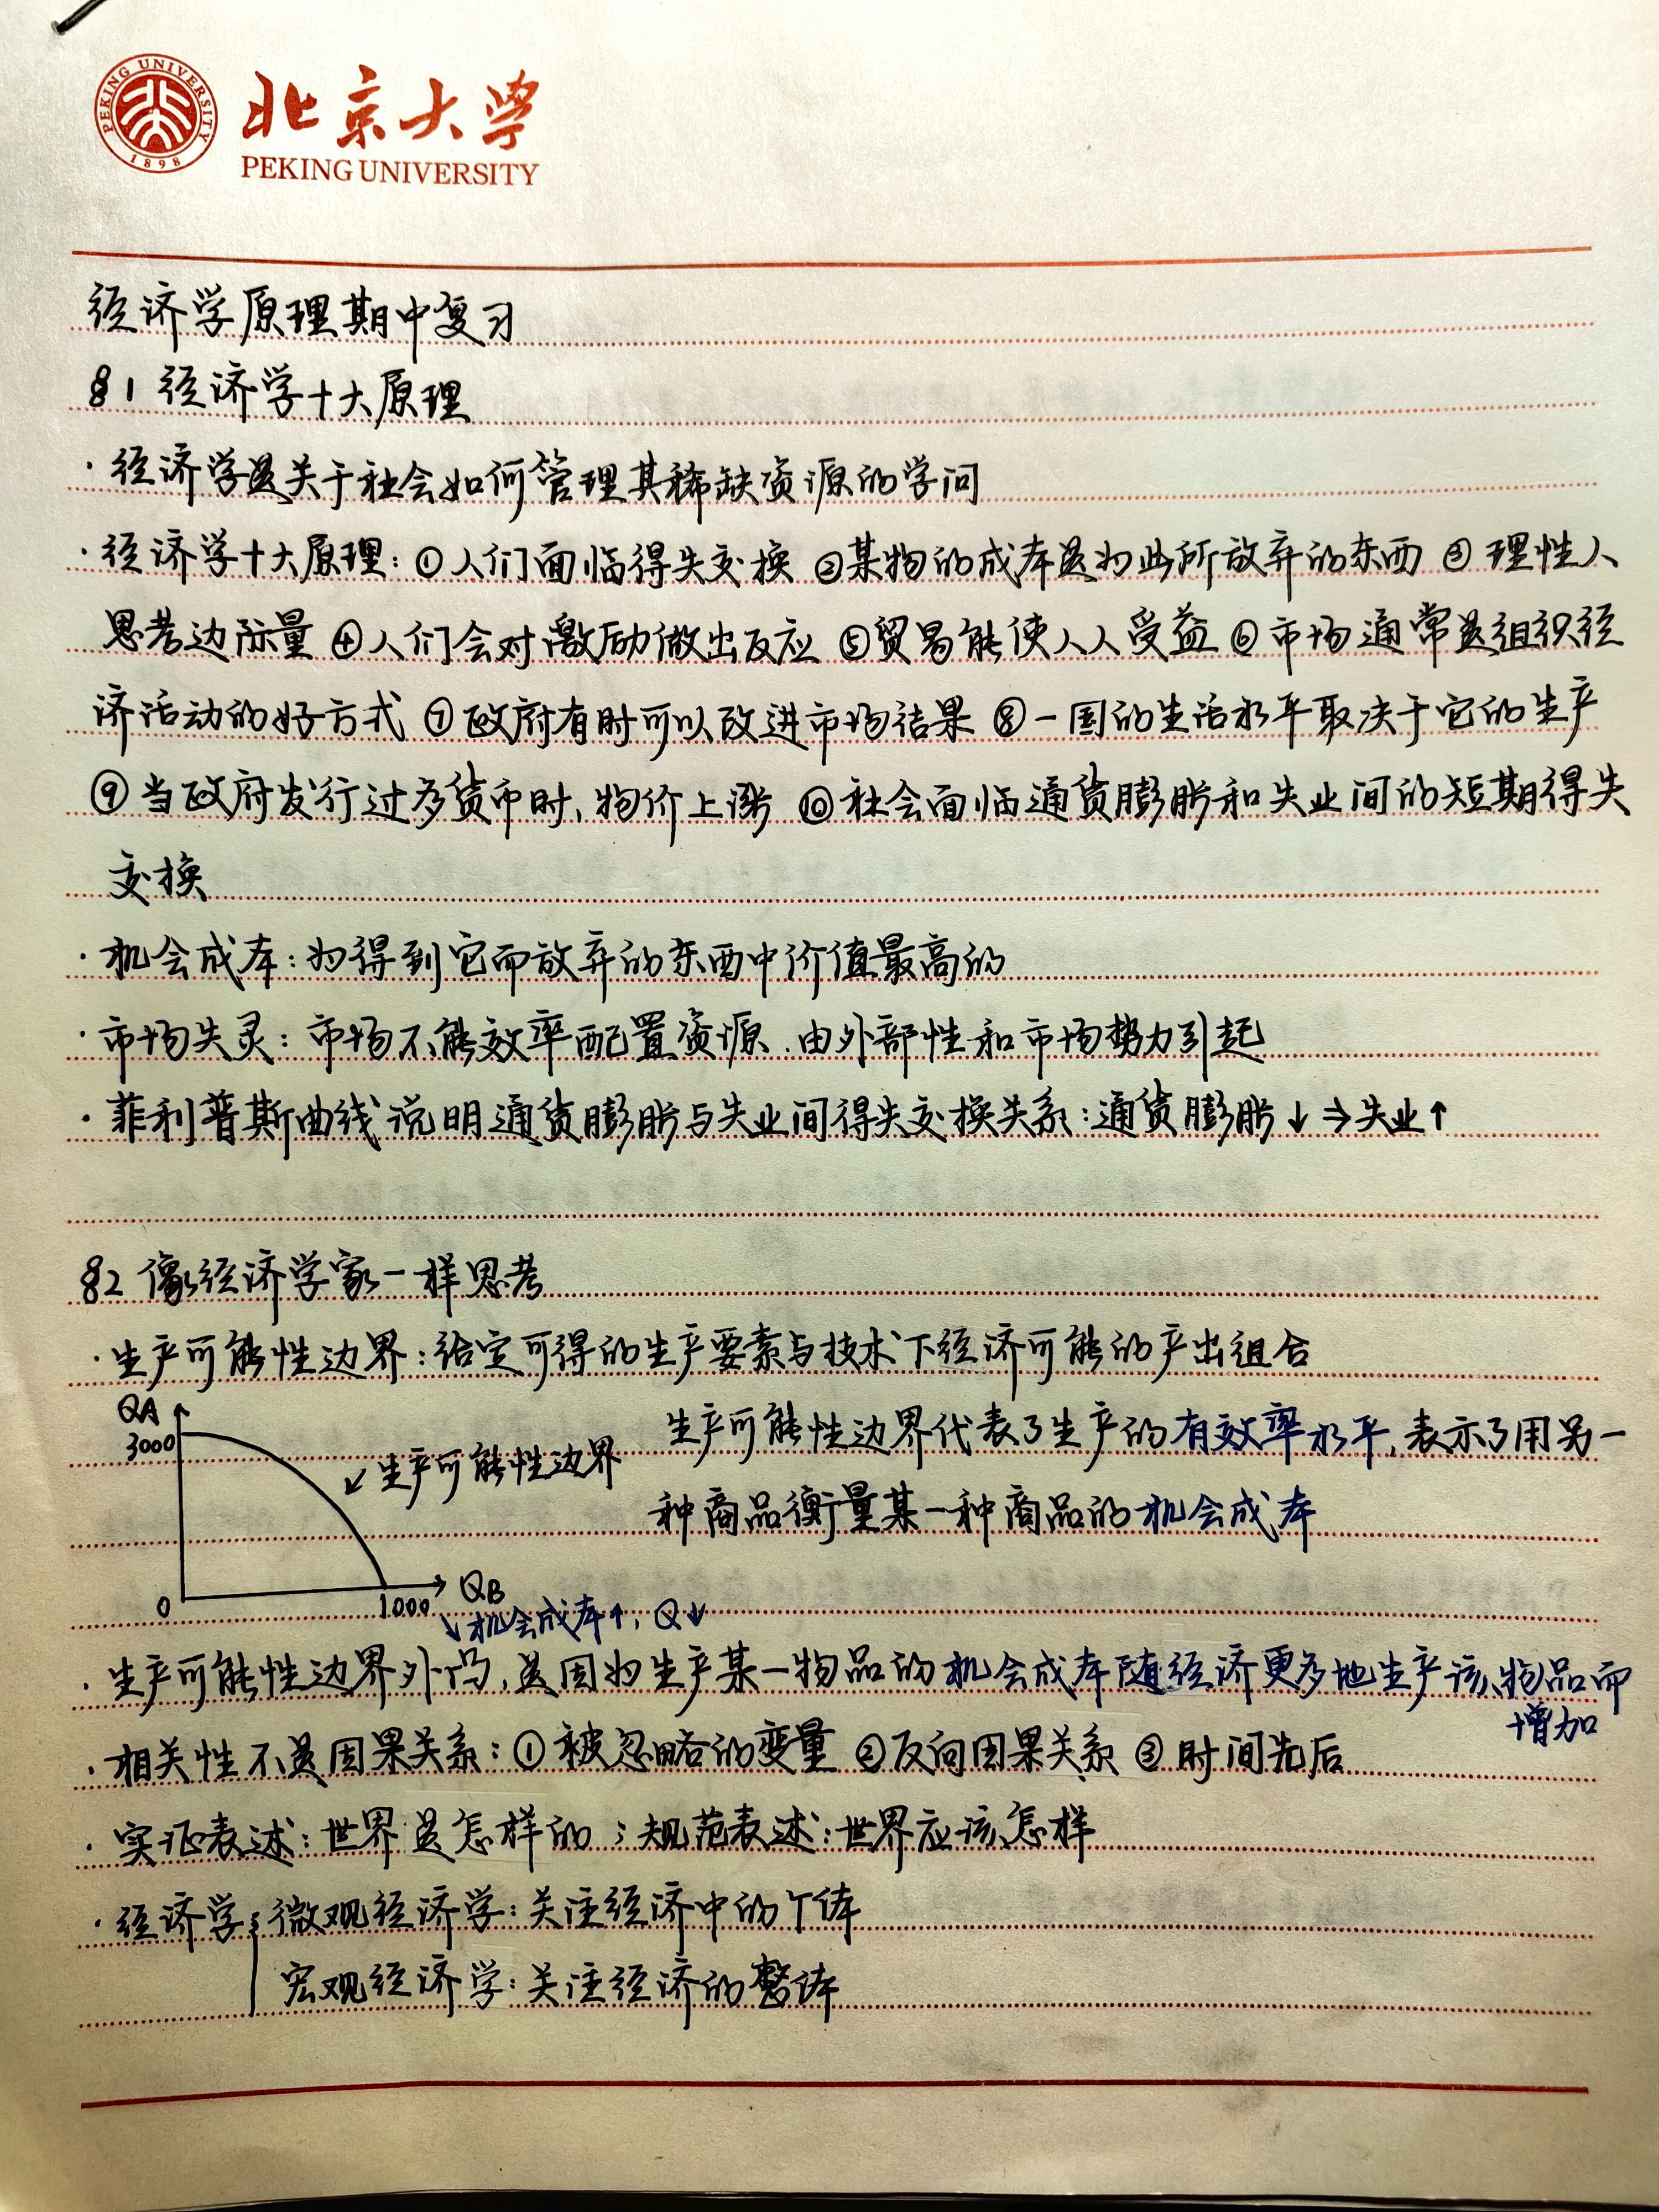 PEKING UNIVERSITY
1898
北京大学
PEKING UNIVERSITY
经济学原理期中复习
§1 经济学十大原理
·经济学是关于社会如何管理其稀缺资源的学问
·经济学十大原理:①人们面临得失交换 ②某物的成本是为此所放弃的东西 ③理性人
思考边际量 ④人们会对激励做出反应 ⑤贸易能使人人受益 ⑥市场通常是组织经
济活动的好方式 ⑦政府有时可以改进市场结果 ⑧一国的生活水平取决于它的生产
⑨当政府发行过多货币时,物价上涨 ⑩社会面临通货膨胀和失业间的短期得失
交换
·机会成本:为得到它而放弃的东西中价值最高的
·市场失灵:市场不能效率配置资源.由外部性和市场势力引起
·菲利普斯曲线说明通货膨胀与失业间得失交换关系:通货膨胀↓⇒失业↑
§2 像经济学家一样思考
·生产可能性边界:给定可得的生产要素与技术下经济可能的产出组合
QA
3000
↙生产可能性边界
生产可能性边界代表了生产的有效率水平,表示了用另一
种商品衡量某一种商品的机会成本
0
1000
QB
↘机会成本↑,Q↓
·生产可能性边界外凸,是因为生产某一物品的机会成本随经济更多地生产该物品而
增加
·相关性不是因果关系:①被忽略的变量 ②反向因果关系 ③时间先后
·实证表述:世界是怎样的;规范表述:世界应该怎样
·经济学{微观经济学:关注经济中的个体
宏观经济学:关注经济的整体